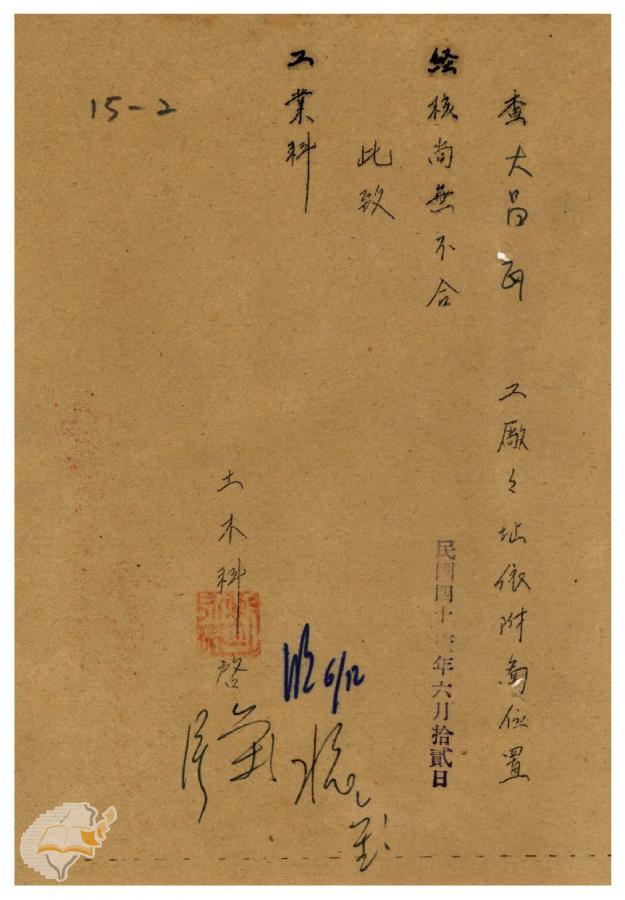 查大昌 工廠々址依附圖位置
経核尚無不合
此致
工業科
土木科啓
民國四十 年六月拾貳日
6/12
15-2